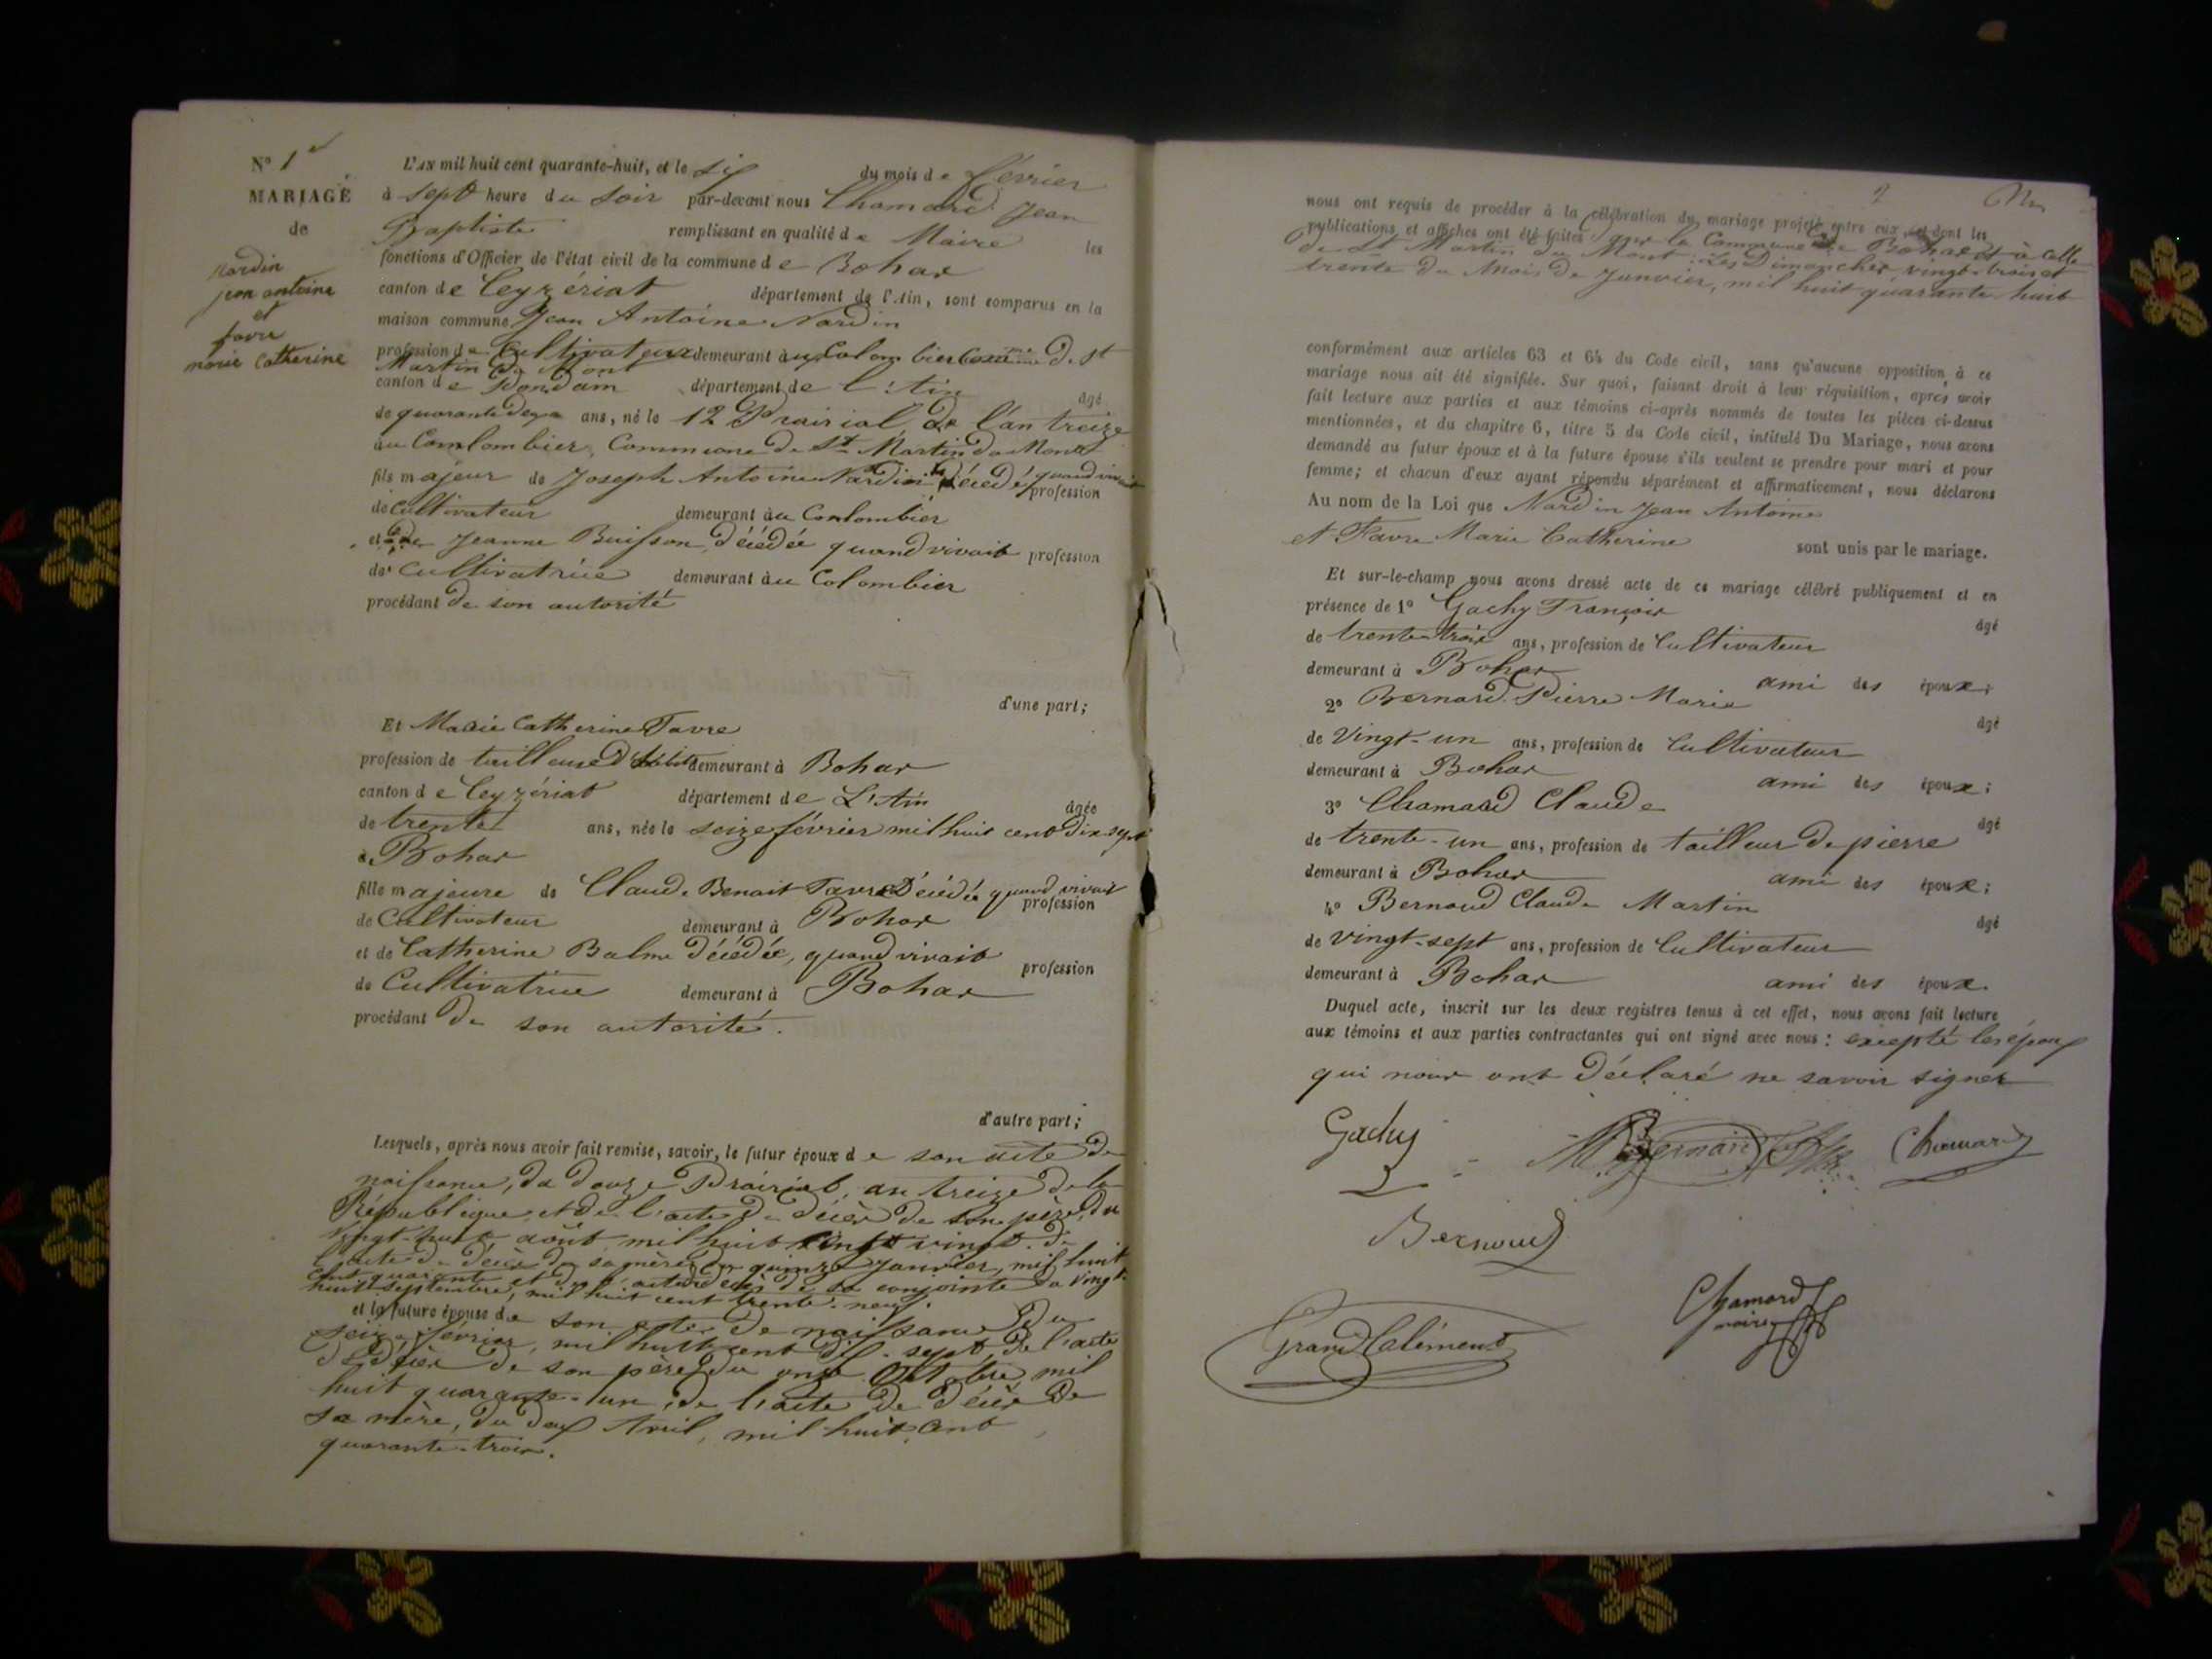 N° 1er
MARIAGE
de
Nardin
jean antoine
et
favre
marie Catherine
L'AN mil huit cent quarante-huit, et le six du mois de février
à sept heure du soir par-devant nous Chamard Jean
Baptiste remplissant en qualité de Maire les
fonctions d'Officier de l'état civil de la commune de Bohas
canton de Ceyzériat département de l'Ain, sont comparus en la
maison commune Jean Antoine Nardin
profession de Cultivateur demeurant au Colombier Commune de St
Martin du Mont
canton de Pondain département de l'Ain âgé
de quarante deux ans, né le 12 Prairial de l'an treize
au Comlombier, Commune de St Martin du Mont
fils majeur de Joseph Antoine Nardin Décédé quand vivait profession
de Cultivateur demeurant au Comlombier
et de Jeanne Buisson, décédée quand vivait profession
de Cultivatrice demeurant au Colombier
procédant de son autorité
d'une part;
Et Marie Catherine Favre
profession de tailleuse d'habits demeurant à Bohas
canton de Ceyzériat département de L'Ain âgée
de trente ans, née le seize février mil huit cent dix sept
à Bohas
fille majeure de Claude Benoit Favre Décédé quand vivait profession
de Cultivateur demeurant à Bohas
et de Catherine Balme décédée, quand vivait profession
de Cultivatrice demeurant à Bohas
procédant de son autorité.
d'autre part;
Lesquels, après nous avoir fait remise, savoir, le futur époux de son acte de
naissance, du douze Prairial, an treize de la
République et de l'acte de décès de son père, du
vingt-huit août mil huit vingt. de
l'acte de décès de sa mère du quinze janvier, mil huit
cent quarante et de l'acte de décès de sa conjointe du vingt
huit septembre, mil huit cent trente-neuf.
et la future épouse de son acte de naissance du
seize février, mil huit cent dix-sept, de l'acte
de décès de son père du onze Octobre mil
huit quarante-un, de l'acte de décès de
sa mère, du deux Avril, mil huit cent
quarante-trois.
2
nous ont requis de procéder à la célébration du mariage projeté entre eux, et dont les
publications et affiches ont été faites par la Commune de Bohas et à celle
de St Martin du Mont. Les Dimanches vingt-trois et
trente du Mois de Janvier, mil huit quarante-huit
conformément aux articles 63 et 64 du Code civil, sans qu'aucune opposition à ce
mariage nous ait été signifiée. Sur quoi, faisant droit à leur réquisition, après avoir
fait lecture aux parties et aux témoins ci-après nommés de toutes les pièces ci-dessus
mentionnées, et du chapitre 6, titre 5 du Code civil, intitulé Du Mariage, nous avons
demandé au futur époux et à la future épouse s'ils veulent se prendre pour mari et pour
femme; et chacun d'eux ayant répondu séparément et affirmativement, nous déclarons
Au nom de la Loi que Nardin Jean Antoine
et Favre Marie Catherine sont unis par le mariage.
Et sur-le-champ nous avons dressé acte de ce mariage célébré publiquement et en
présence de 1° Gachy François âgé
de trente-trois ans, profession de Cultivateur
demeurant à Bohas ami des époux;
2° Bernard Pierre Marie âgé
de Vingt-un ans, profession de Cultivateur
demeurant à Bohas ami des époux;
3° Chamard Claude âgé
de trente-un ans, profession de tailleur de pierre
demeurant à Bohas ami des époux;
4° Bernoud Claude Martin âgé
de vingt-sept ans, profession de Cultivateur
demeurant à Bohas ami des époux.
Duquel acte, inscrit sur les deux registres tenus à cet effet, nous avons fait lecture
aux témoins et aux parties contractantes qui ont signé avec nous: excepté les époux
qui nous ont déclaré ne savoir signer
Gachy Bernard Chamard
Bernoud
Grand Clément Chamard
maire